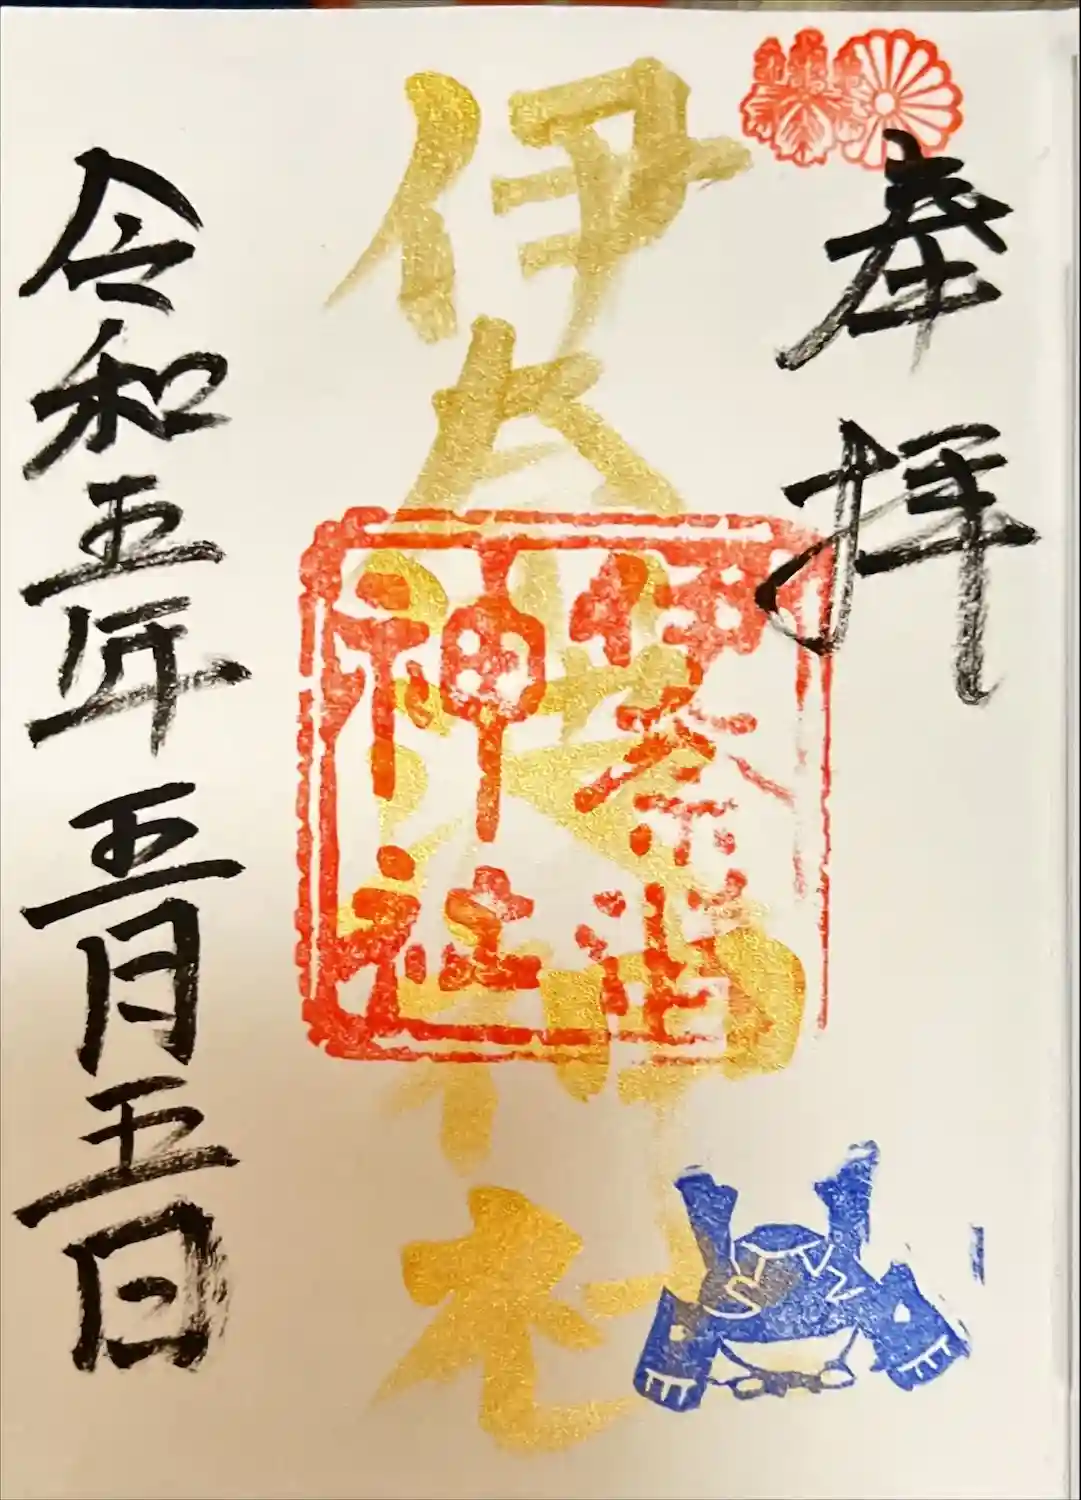 奉拝
伊奈波神社
伊奈波
神社
令和五年五月五日